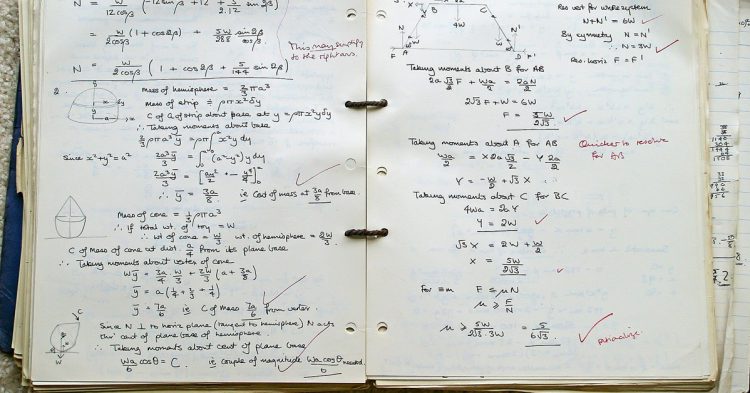 N = W/12cosβ (-12sinβ + 12 + 5/2.12 sin2β)
= W/2cosβ (1 + cos2β) + 5W/288 sin2β/cosβ
This may simplify
N = W/2cosβ (1 + cos2β + 5/144 sin2β)
2.
Mass of hemisphere = 2/3 ρπa³
Mass of strip ≑ ρπx²δy
C of G of strip about base at y = ρπx²yδy
∴ Taking moments about base
2/3 ρπa³ȳ = ρπ∫x²y dy
Since x²+y²=a² 2a³/3 ȳ = ∫(a²-y²)y dy
2a³ȳ/3 = [a²y²/2 - y⁴/4]
∴ ȳ = 3a/8 ie Cent of mass at 3a/8 from base.
Mass of cone = 1/3 ρπa³
∴ If total wt. of toy = W
∴ wt of cone = W/3 wt. of hemisphere = 2W/3
C of Mass of cone at dist. a/4 from its plane base
∴ Taking moments about vertex of cone
Wȳ = 3a/4 · W/3 + 2W/3 (a + 3a/8)
ȳ = a(1/4 + 2/3 + 1/4)
ȳ = 7a/6 ie C of mass 7a/6 from vertex.
Since N ⊥ to horiz plane (tangent to hemisphere) N acts
thro' cent of plane base of hemisphere.
∴ Taking moments about cent of plane base
Wa/6 cosθ = C. ie couple of magnitude Wa cosθ/6 needed
A B C D
4W
N N'
F F'
W W
Res vert for whole system
N+N' = 6W
By symmetry N = N'
∴ N = 3W
Res. horiz F = F'
Taking moments about B for AB
2a√3/2 F + Wa/2 = 2aN/2
2√3F + W = 6W
F = 5W/2√3
Taking moments about A for AB
Quicker to resolve
for AB
Wa/2 = X2a√3/2 - Y2a/2
Y = -W/2 + √3X
Taking moments about C for BC
4Wa = 2aY
Y = 2W
√3X = 2W + W/2
X = 5W/2√3
For ≡m F ≤ μN
μ ≥ F/N
μ ≥ 5W/2√3·3W = 5/6√3